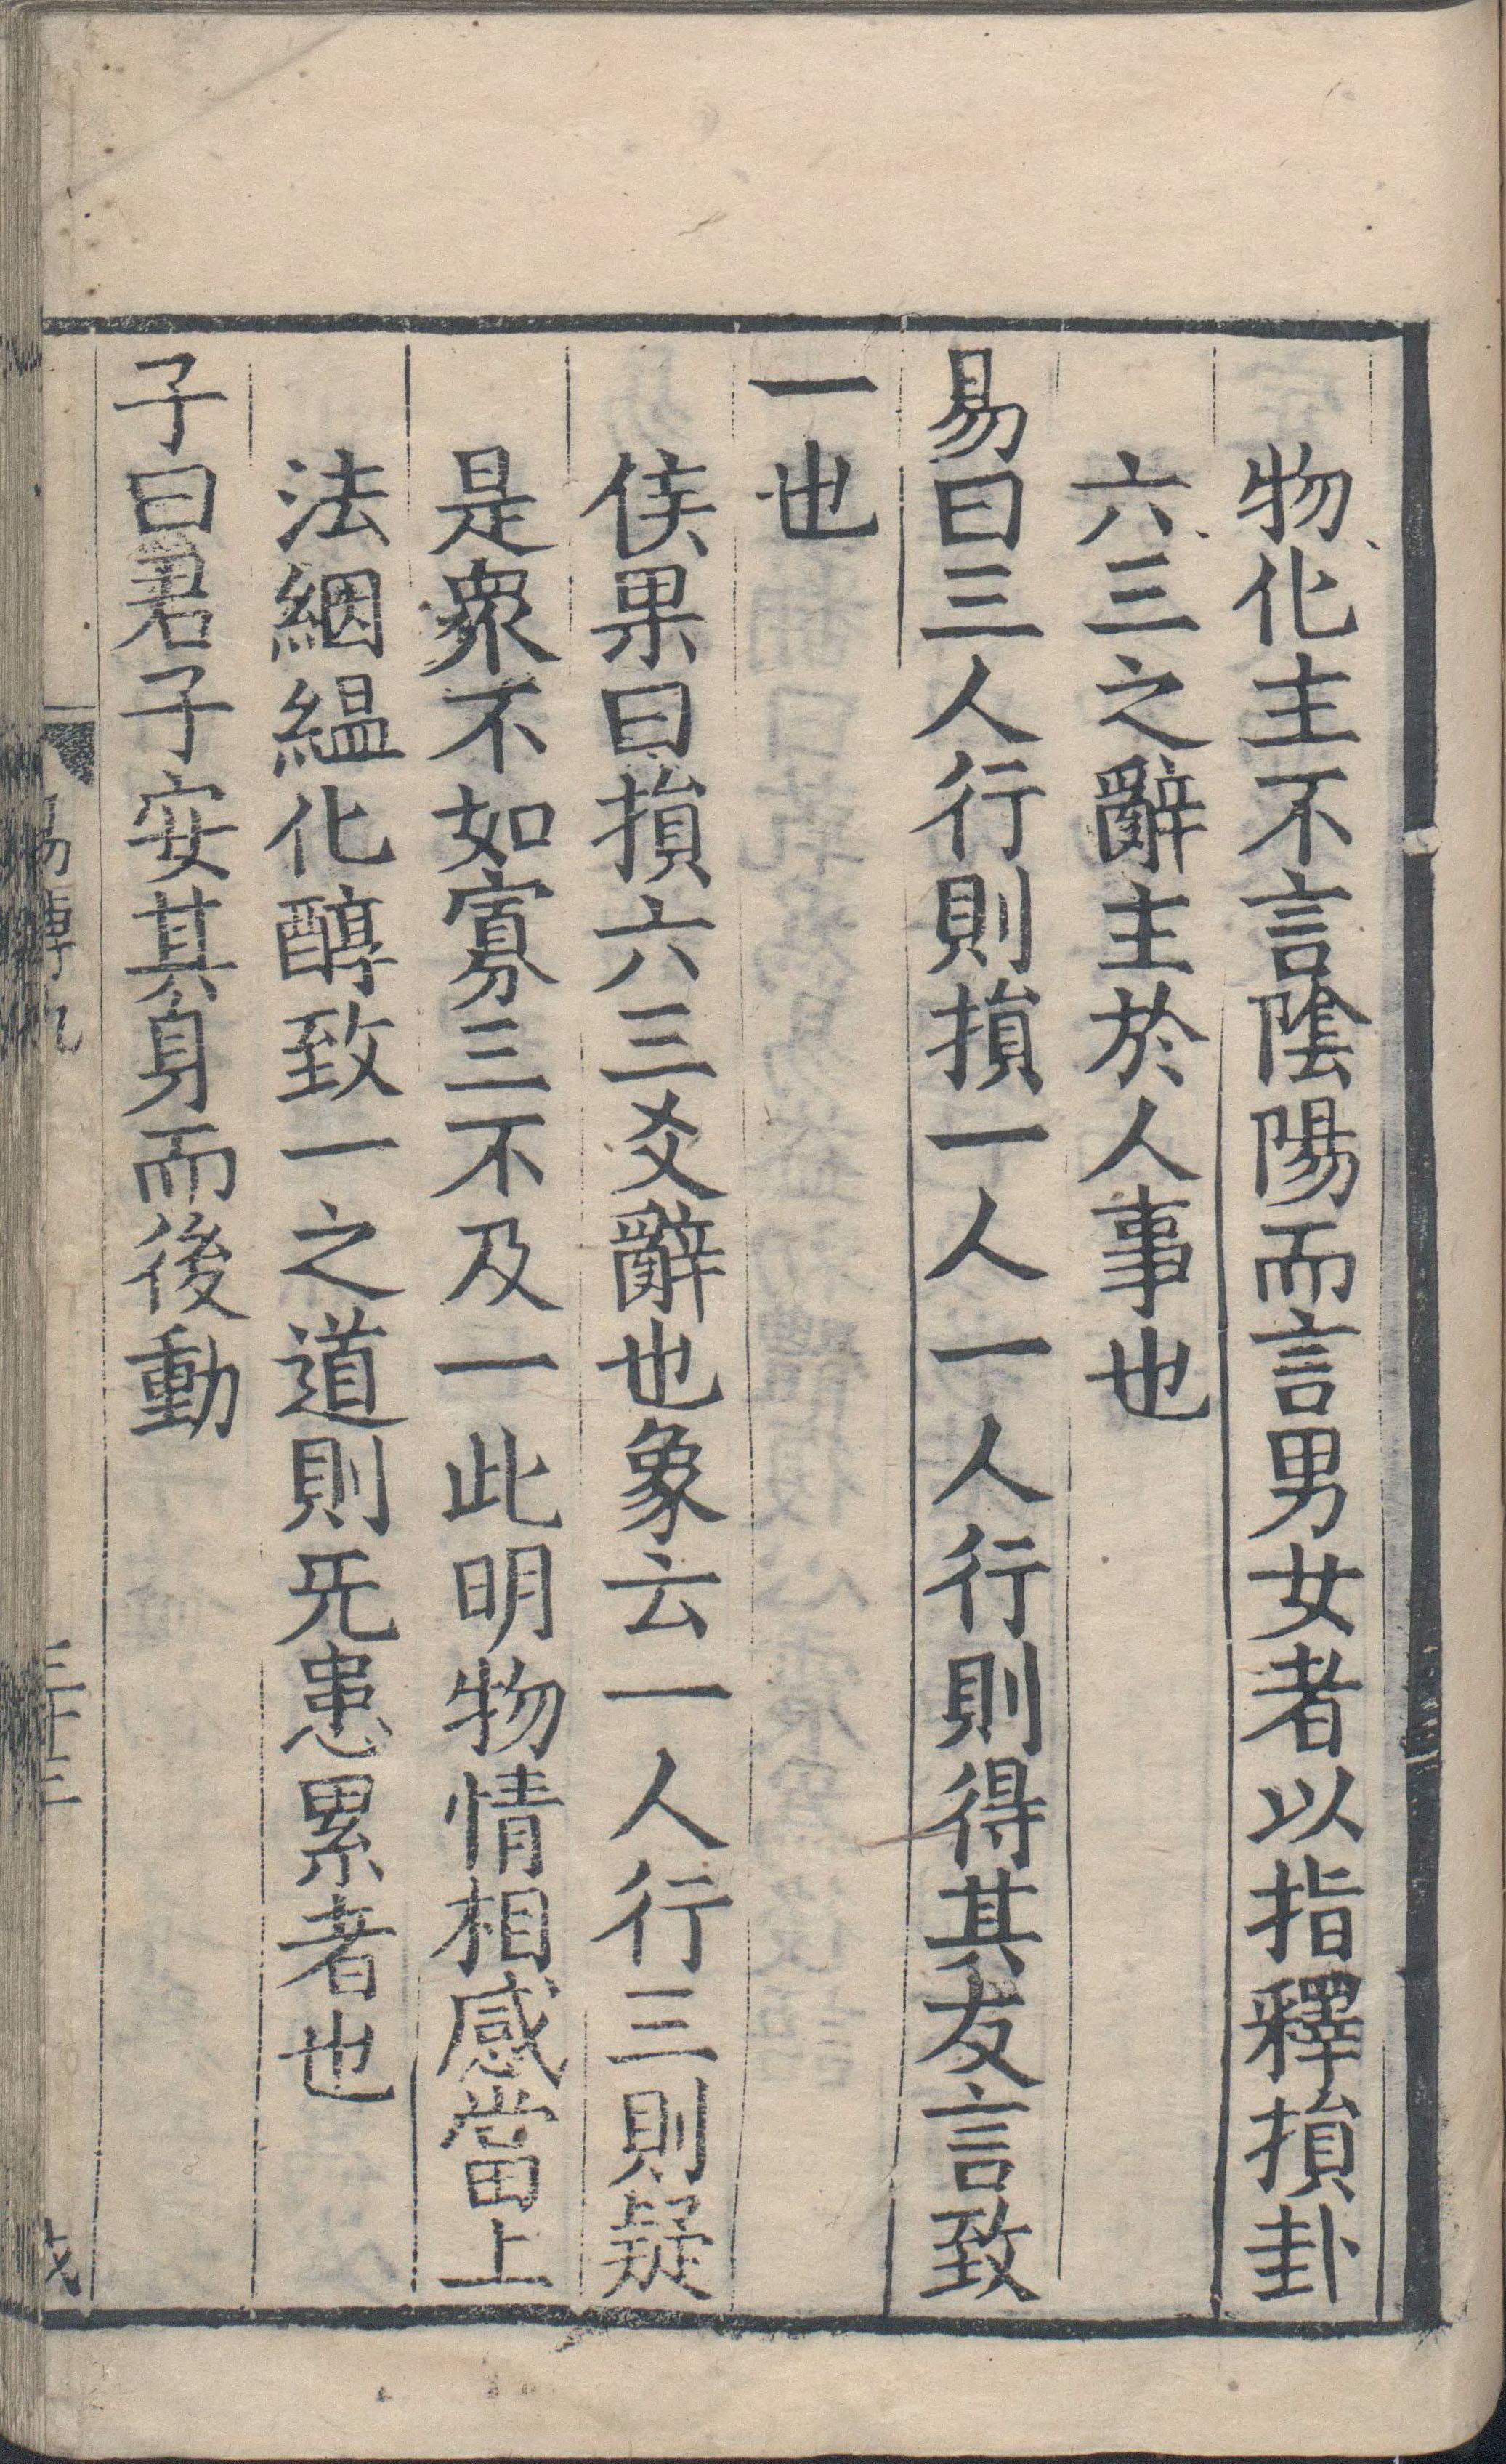 物化主不言隂陽而言男女者以指釋損卦
六三之辭主於人事也
易曰三人行則損一人一人行則得其友言致
一也
侯果曰損六三爻辭也象云一人行三則疑
是衆不如寡三不及一此明物情相感當上
法絪緼化醇致一之道則旡患累者也
子曰君子安其身而後動
易傳九
三十三